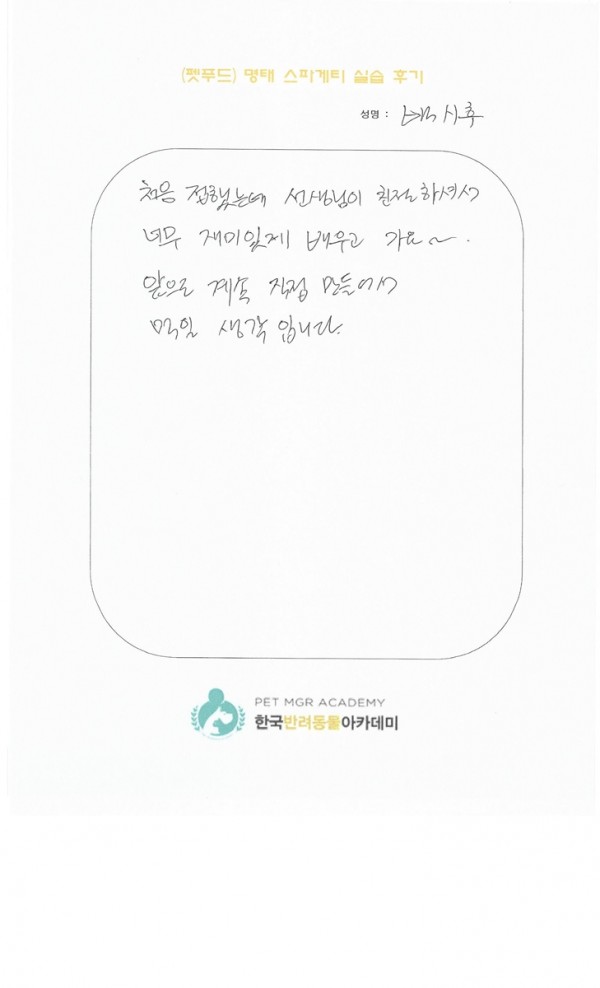 (펫푸드) 명태 스파게티 실습 후기
성명 : 시후
처음 접했는데 선생님이 친절하셔서
너무 재미있게 배우고 가요~.
앞으로 계속 직접 만들어서
먹일 생각입니다.
PET MGR ACADEMY
한국반려동물아카데미